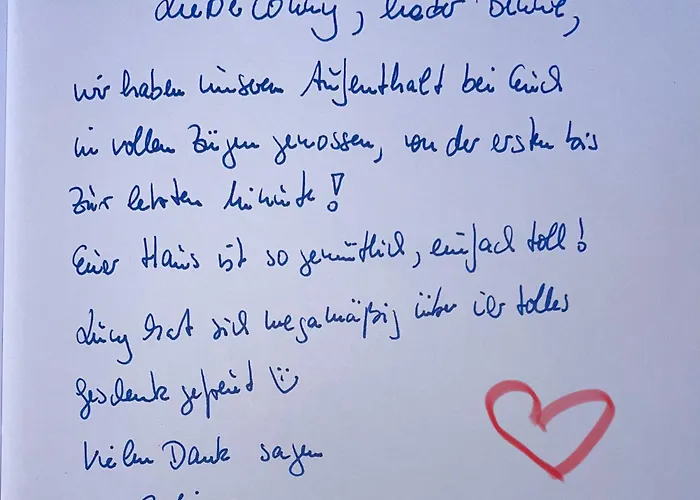 Liebe Conny, lieber
wir haben unseren Aufenthalt bei Euch
in vollen Zügen genossen, von der ersten bis
zur letzten Minute!
Euer Haus ist so gemütlich, einfach toll!
Lucy hat sich megamäßig über ihr tolles
Geschenk gefreut
Vielen Dank sagen